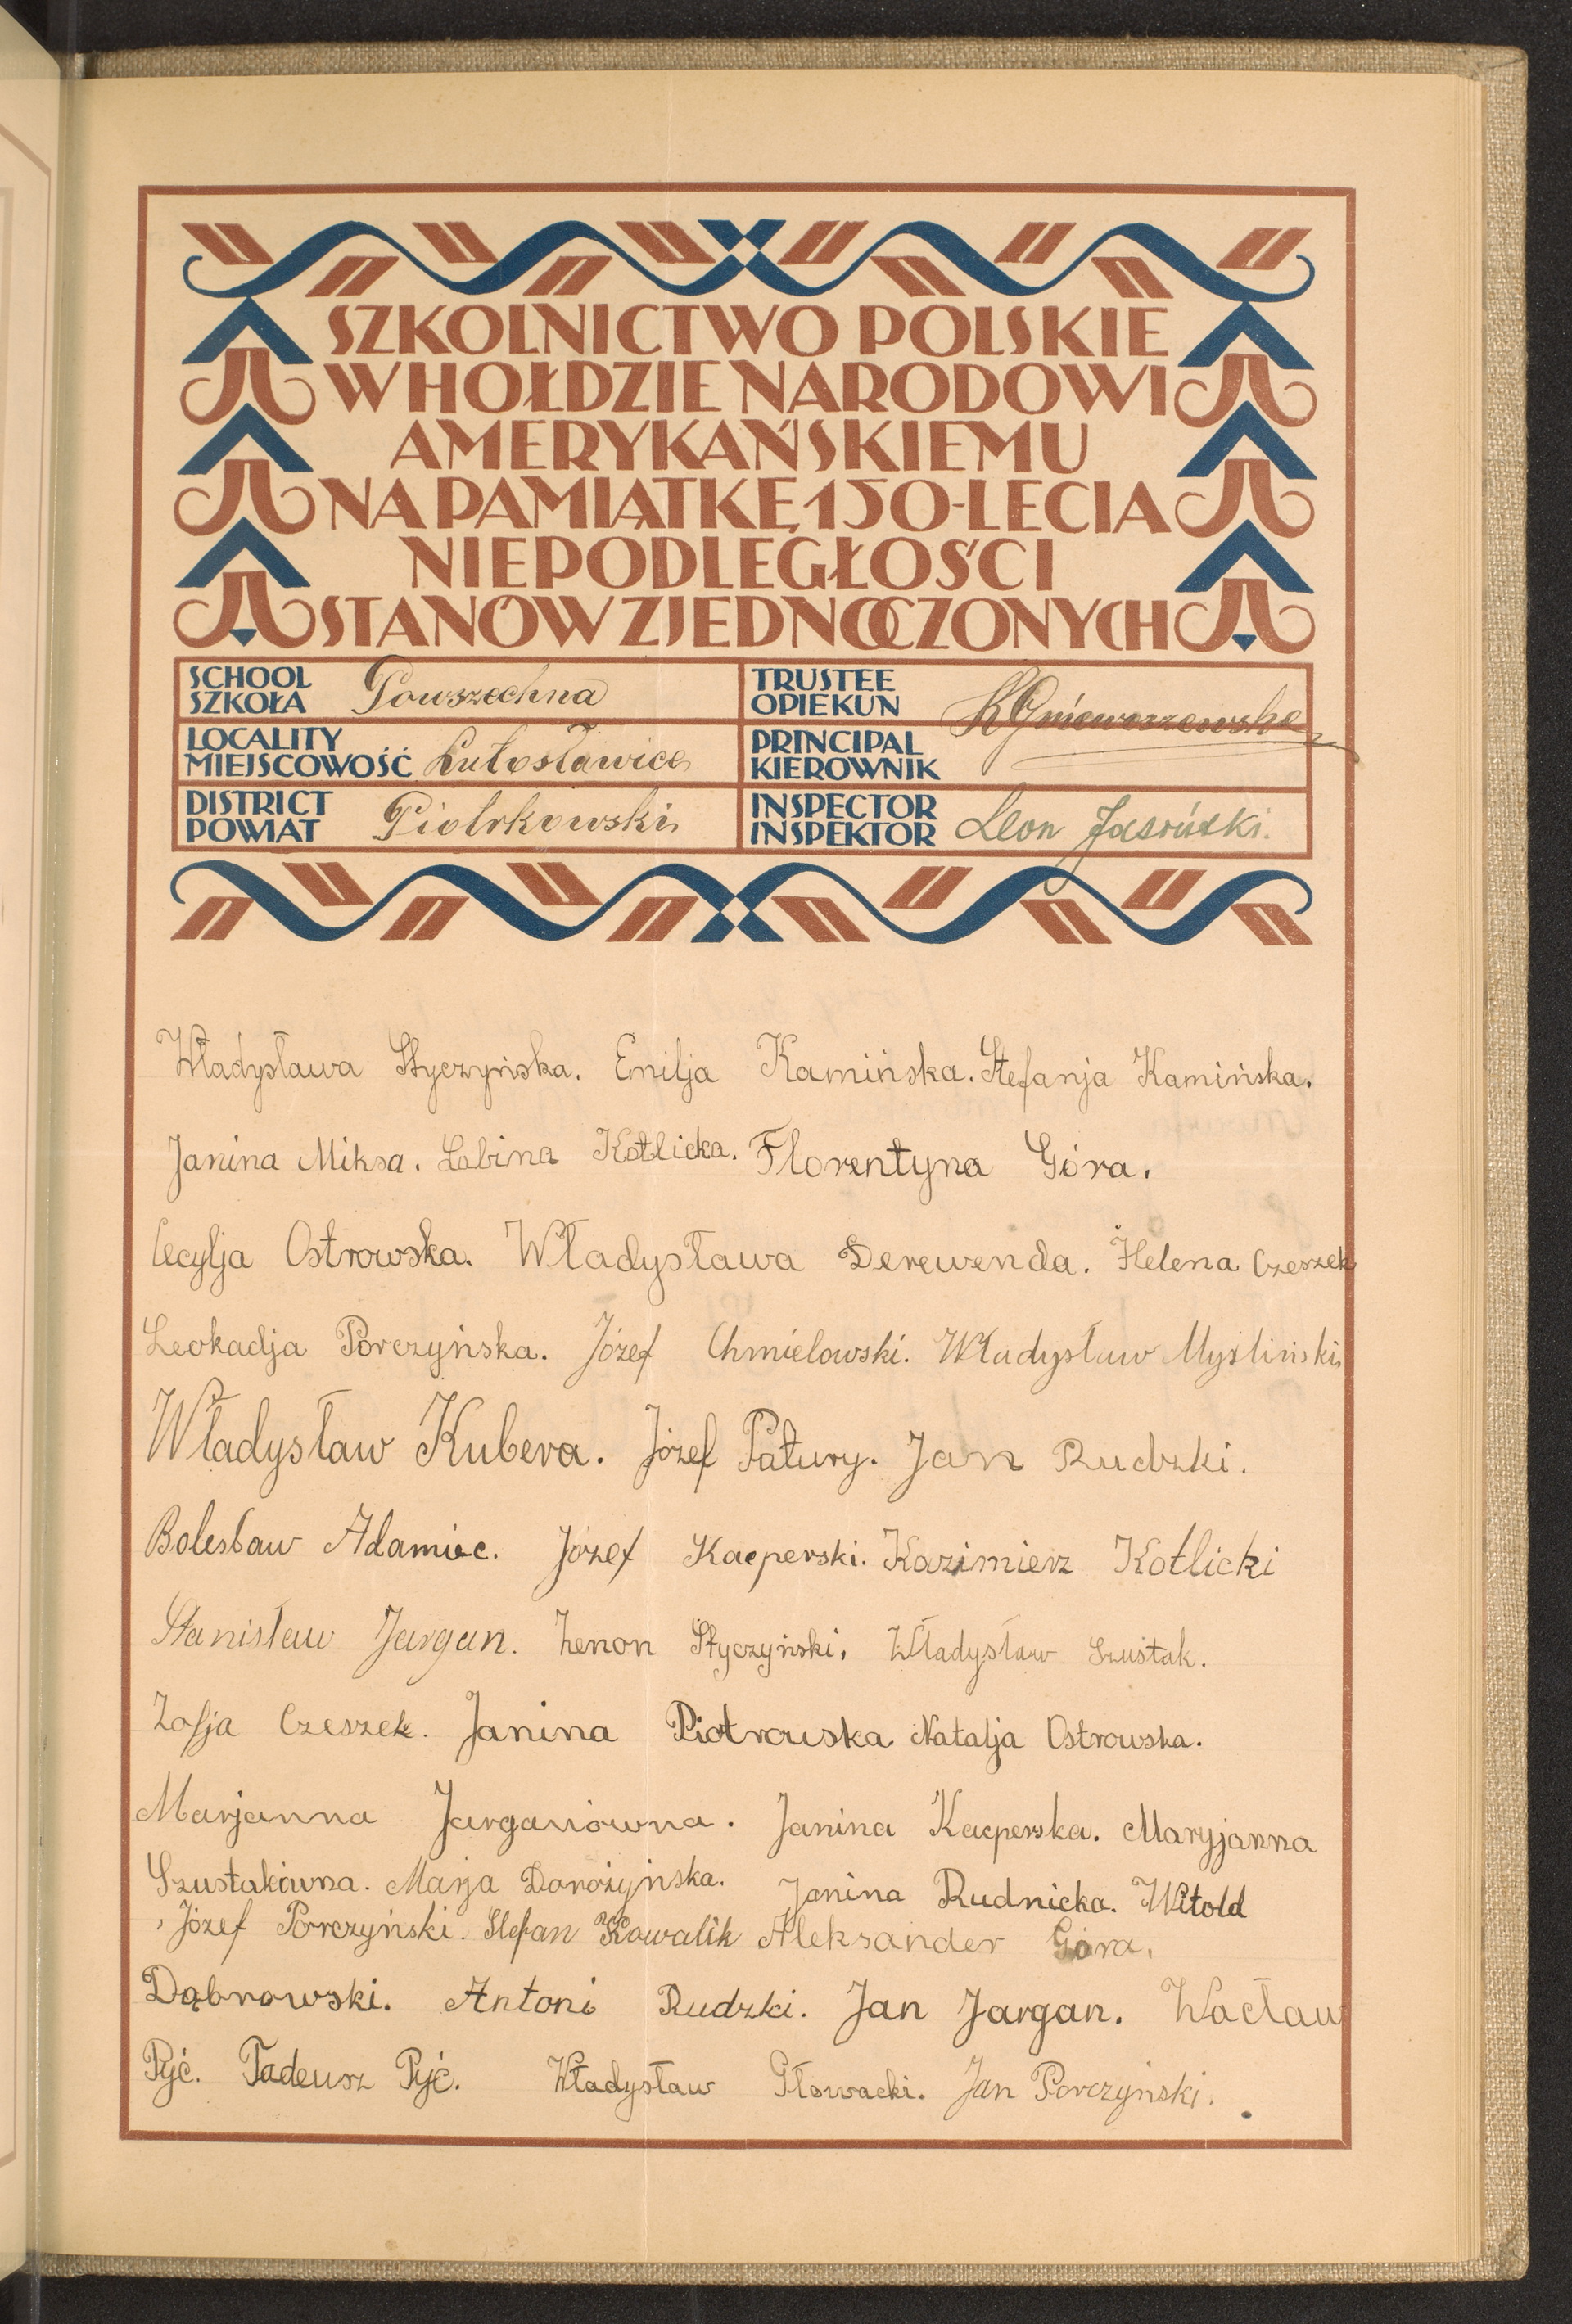 SZKOLNICTWO POLSKIE
W HOŁDZIE NARODOWI
AMERYKAŃSKIEMU
NA PAMIĄTKĘ 150-LECIA
NIEPODLEGŁOŚCI
STANÓW ZJEDNOCZONYCH
SCHOOL
SZKOŁA Powszechna
LOCALITY
MIEJSCOWOŚĆ Lutosławice
DISTRICT
POWIAT Piotrkowski
TRUSTEE
OPIEKUN
K Gniewoszewska
PRINCIPAL
KIEROWNIK
INSPECTOR
INSPEKTOR Leon Jasiński.
Władysława Styczyńska. Emilja Kamińska. Stefanja Kamińska.
Janina Miksa. Sabina Kotlicka. Florentyna Góra.
Cecylja Ostrowska. Władysława Derewenda. Helena Czeszek
Leokadja Porczyńska. Józef Chmielowski. Władysław Myśliński
Władysław Kubera. Józef Patury. Jan Rudzki.
Bolesław Adamiec. Józef Kacperski. Kazimierz Kotlicki
Stanisław Jargan. Zenon Styczyński. Władysław Szustak.
Zofja Czeszek. Janina Piotrowska Natalja Ostrowska.
Marjanna Jarganówna. Janina Kacperska. Maryjanna
Szustakówna. Marja Dorożyńska. Janina Rudnicka. Witold
Józef Porczyński. Stefan Kowalik Aleksander Góra.
Dąbrowski. Antoni Rudzki. Jan Jargan. Wacław
Pyć. Tadeusz Pyć. Władysław Głowacki. Jan Porczyński.